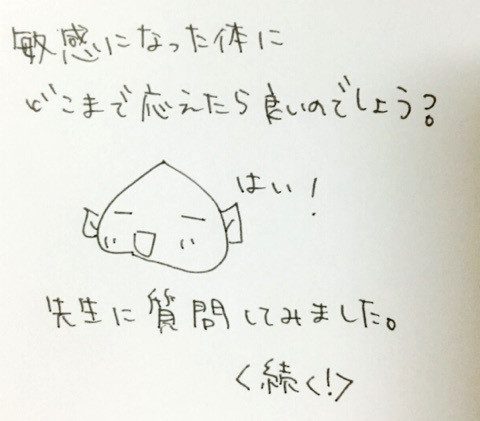 敏感になった体に
どこまで応えたら良いのでしょう?
はい!
先生に質問してみました。
<続く!>